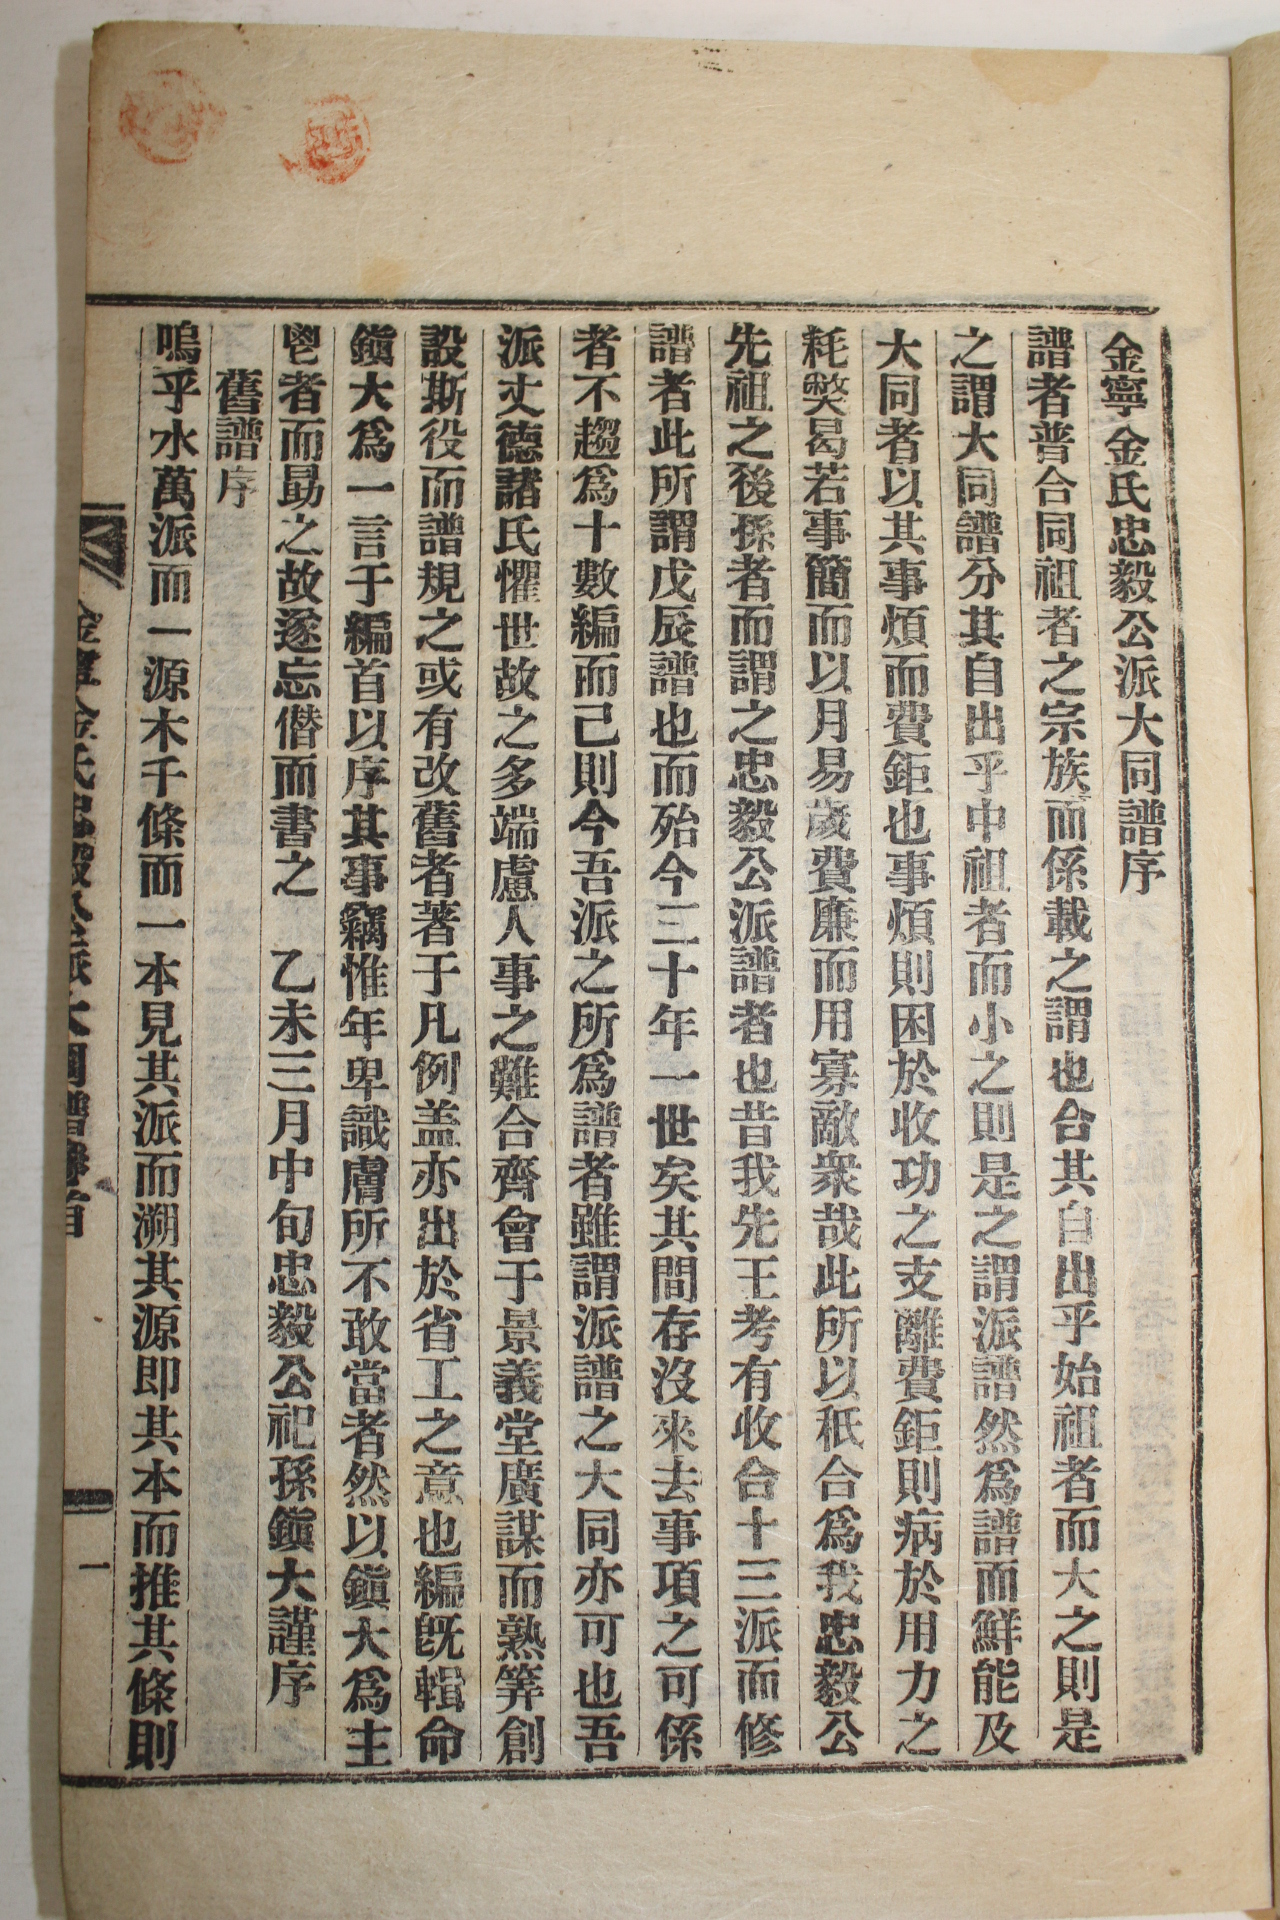 金寧金氏忠毅公派大同譜序
譜者普合同祖者之宗族而係載之謂也合其自出乎始祖者而大之則是
之謂大同譜分其自出乎中祖者而小之則是之謂派譜然爲譜而鮮能及
大同者以其事煩而費鉅也事煩則困於收功之支離費鉅則病於用力之
耗獘曷若事簡而以月易歲費廉而用寡敵衆哉此所以秖合爲我忠毅公
先祖之後孫者而謂之忠毅公派譜者也昔我先王考有收合十三派而修
譜者此所謂戊辰譜也而殆今三十年一世矣其間存沒來去事項之可係
者不趨爲十數編而己則今吾派之所爲譜者雖謂派譜之大同亦可也吾
派丈德諸氏懼世故之多端慮人事之難合齊會于景義堂廣謀而熟筭創
設斯役而譜規之或有改舊者著于凡例盖亦出於省工之意也編旣輯命
鎭大爲一言于編首以序其事竊惟年卑識膚所不敢當者然以鎭大爲主
鬯者而勗之故遂忘僭而書之　乙未三月中旬忠毅公祀孫鎭大謹序
舊譜序
嗚乎水萬派而一源木千條而一本見其派而溯其源即其本而推其條則
金寧金氏忠毅公派大同譜卷首
一